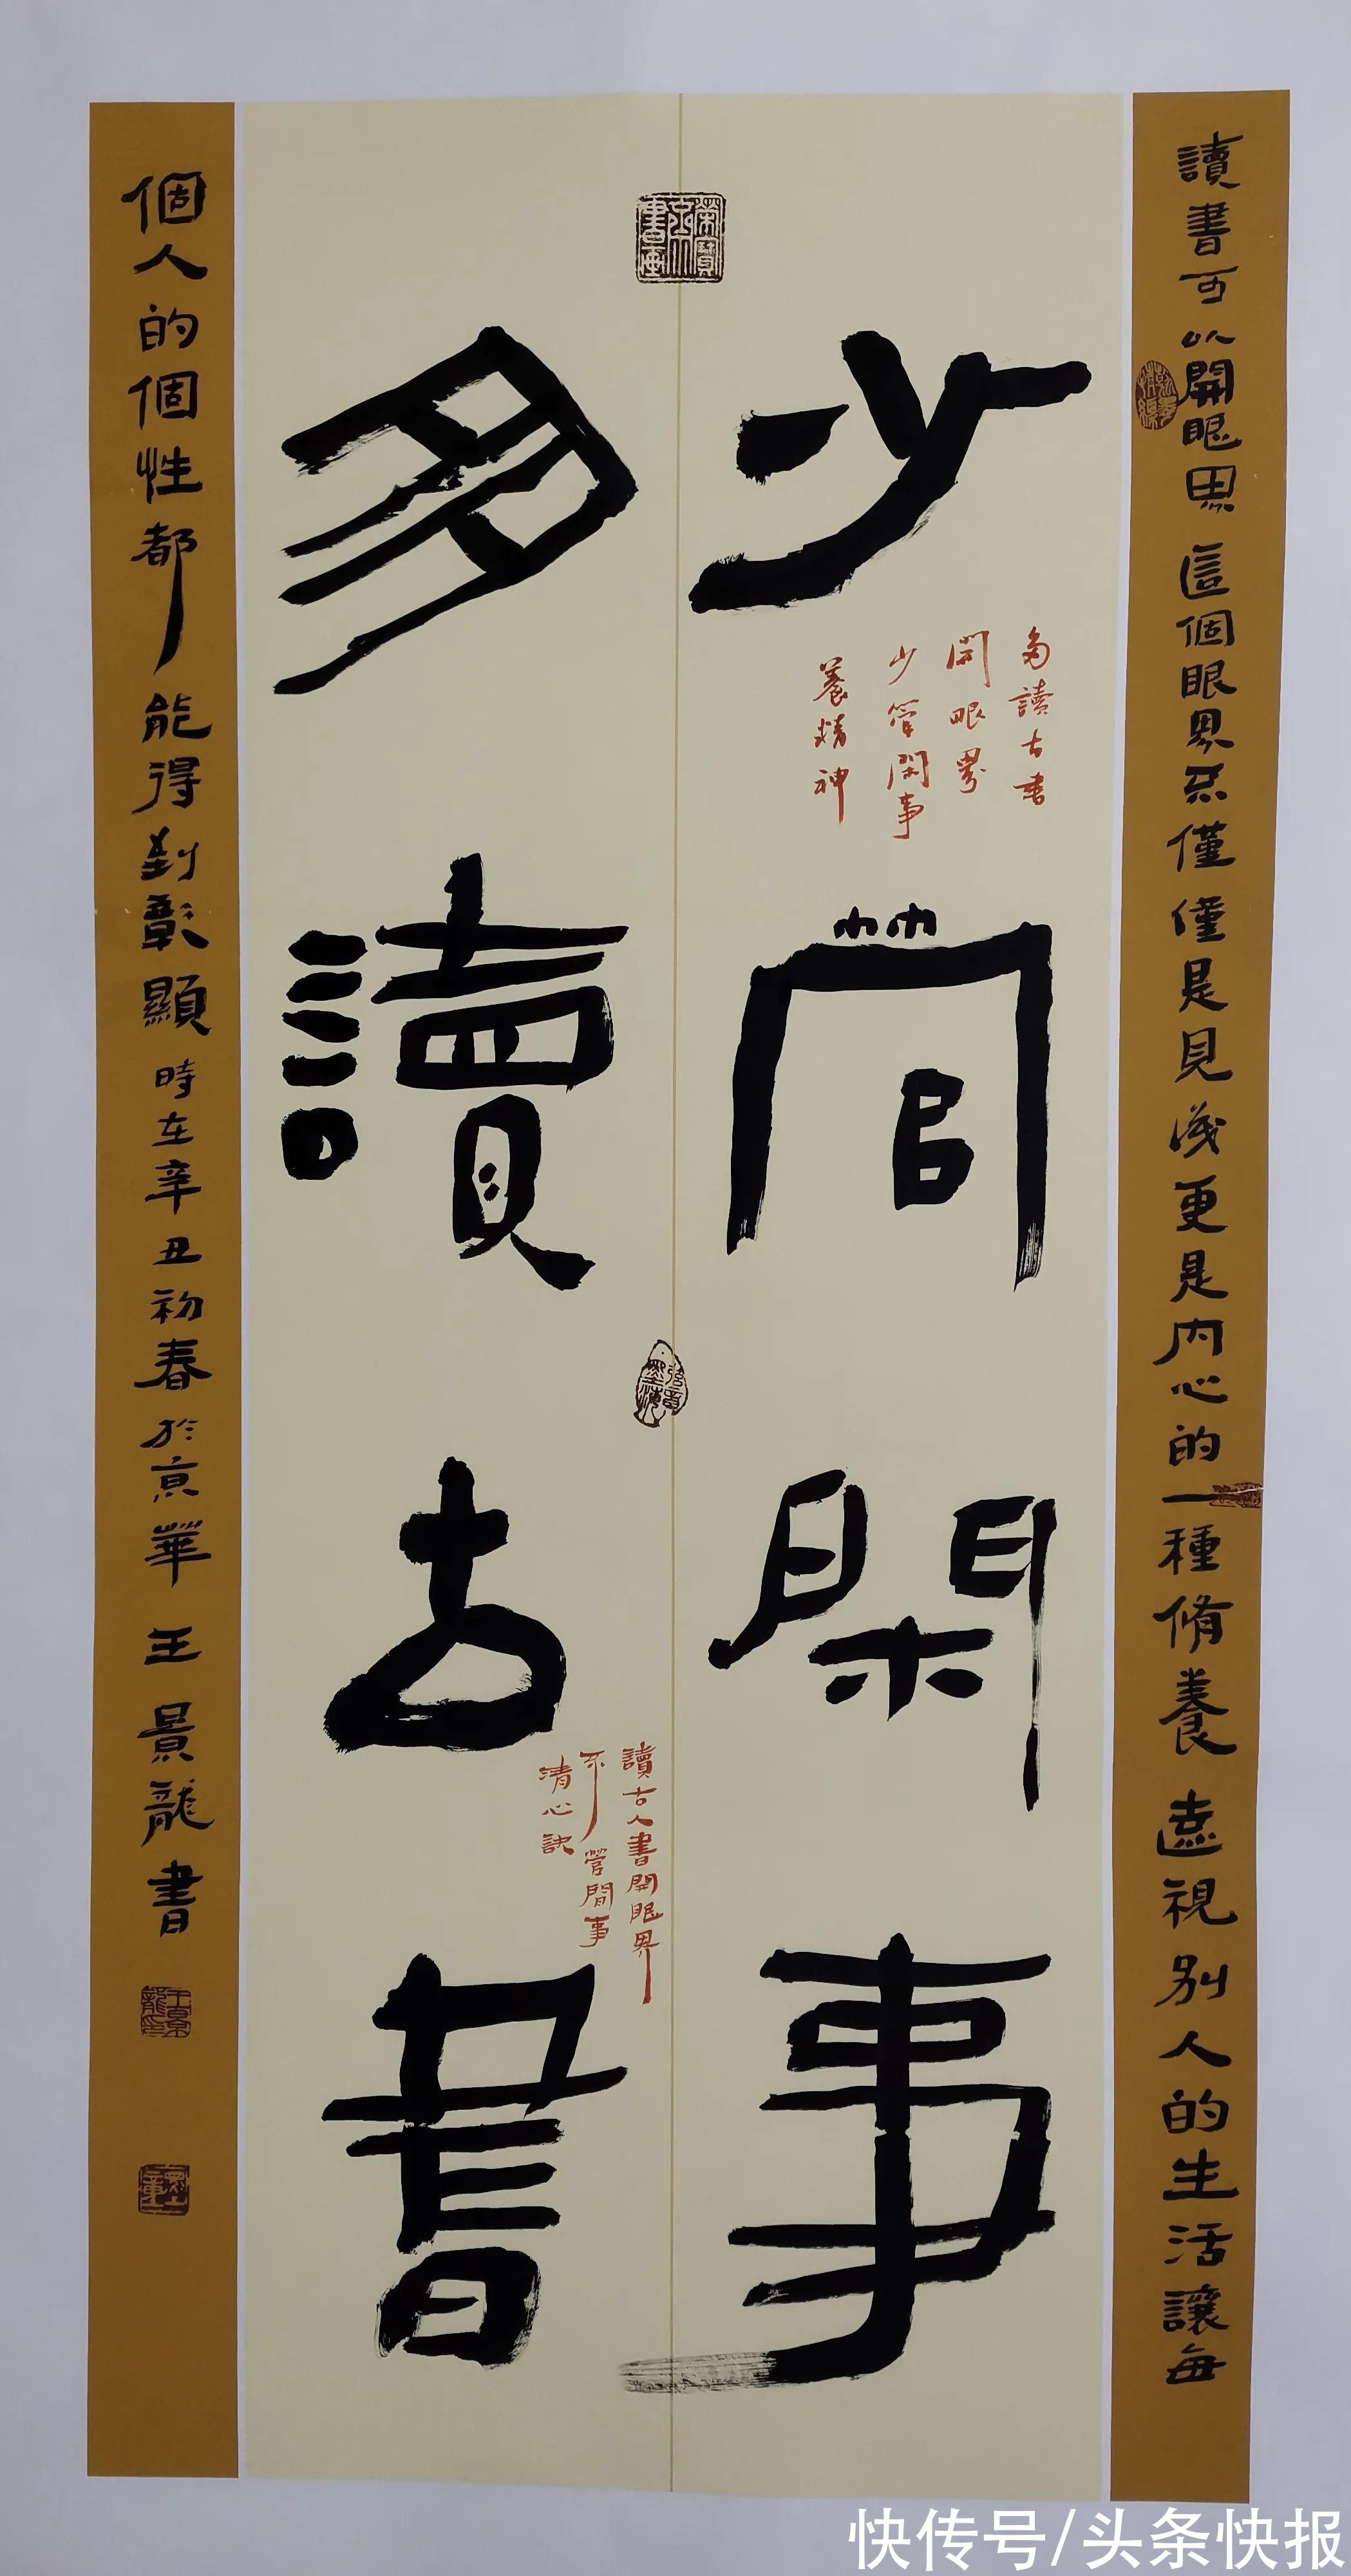 讀書可以開眼界這個眼界不僅僅是見識更是內心的一種脩養遠視別人的生活讓每
少管閑事
多讀古書
開眼界
少管閑事
養精神
多讀古書
讀古人書開眼界
不管閒事
清心訣
個人的個性都能得到彰顯時在辛丑初春於京華王景龍書
王景龍印
快传号/头条快报